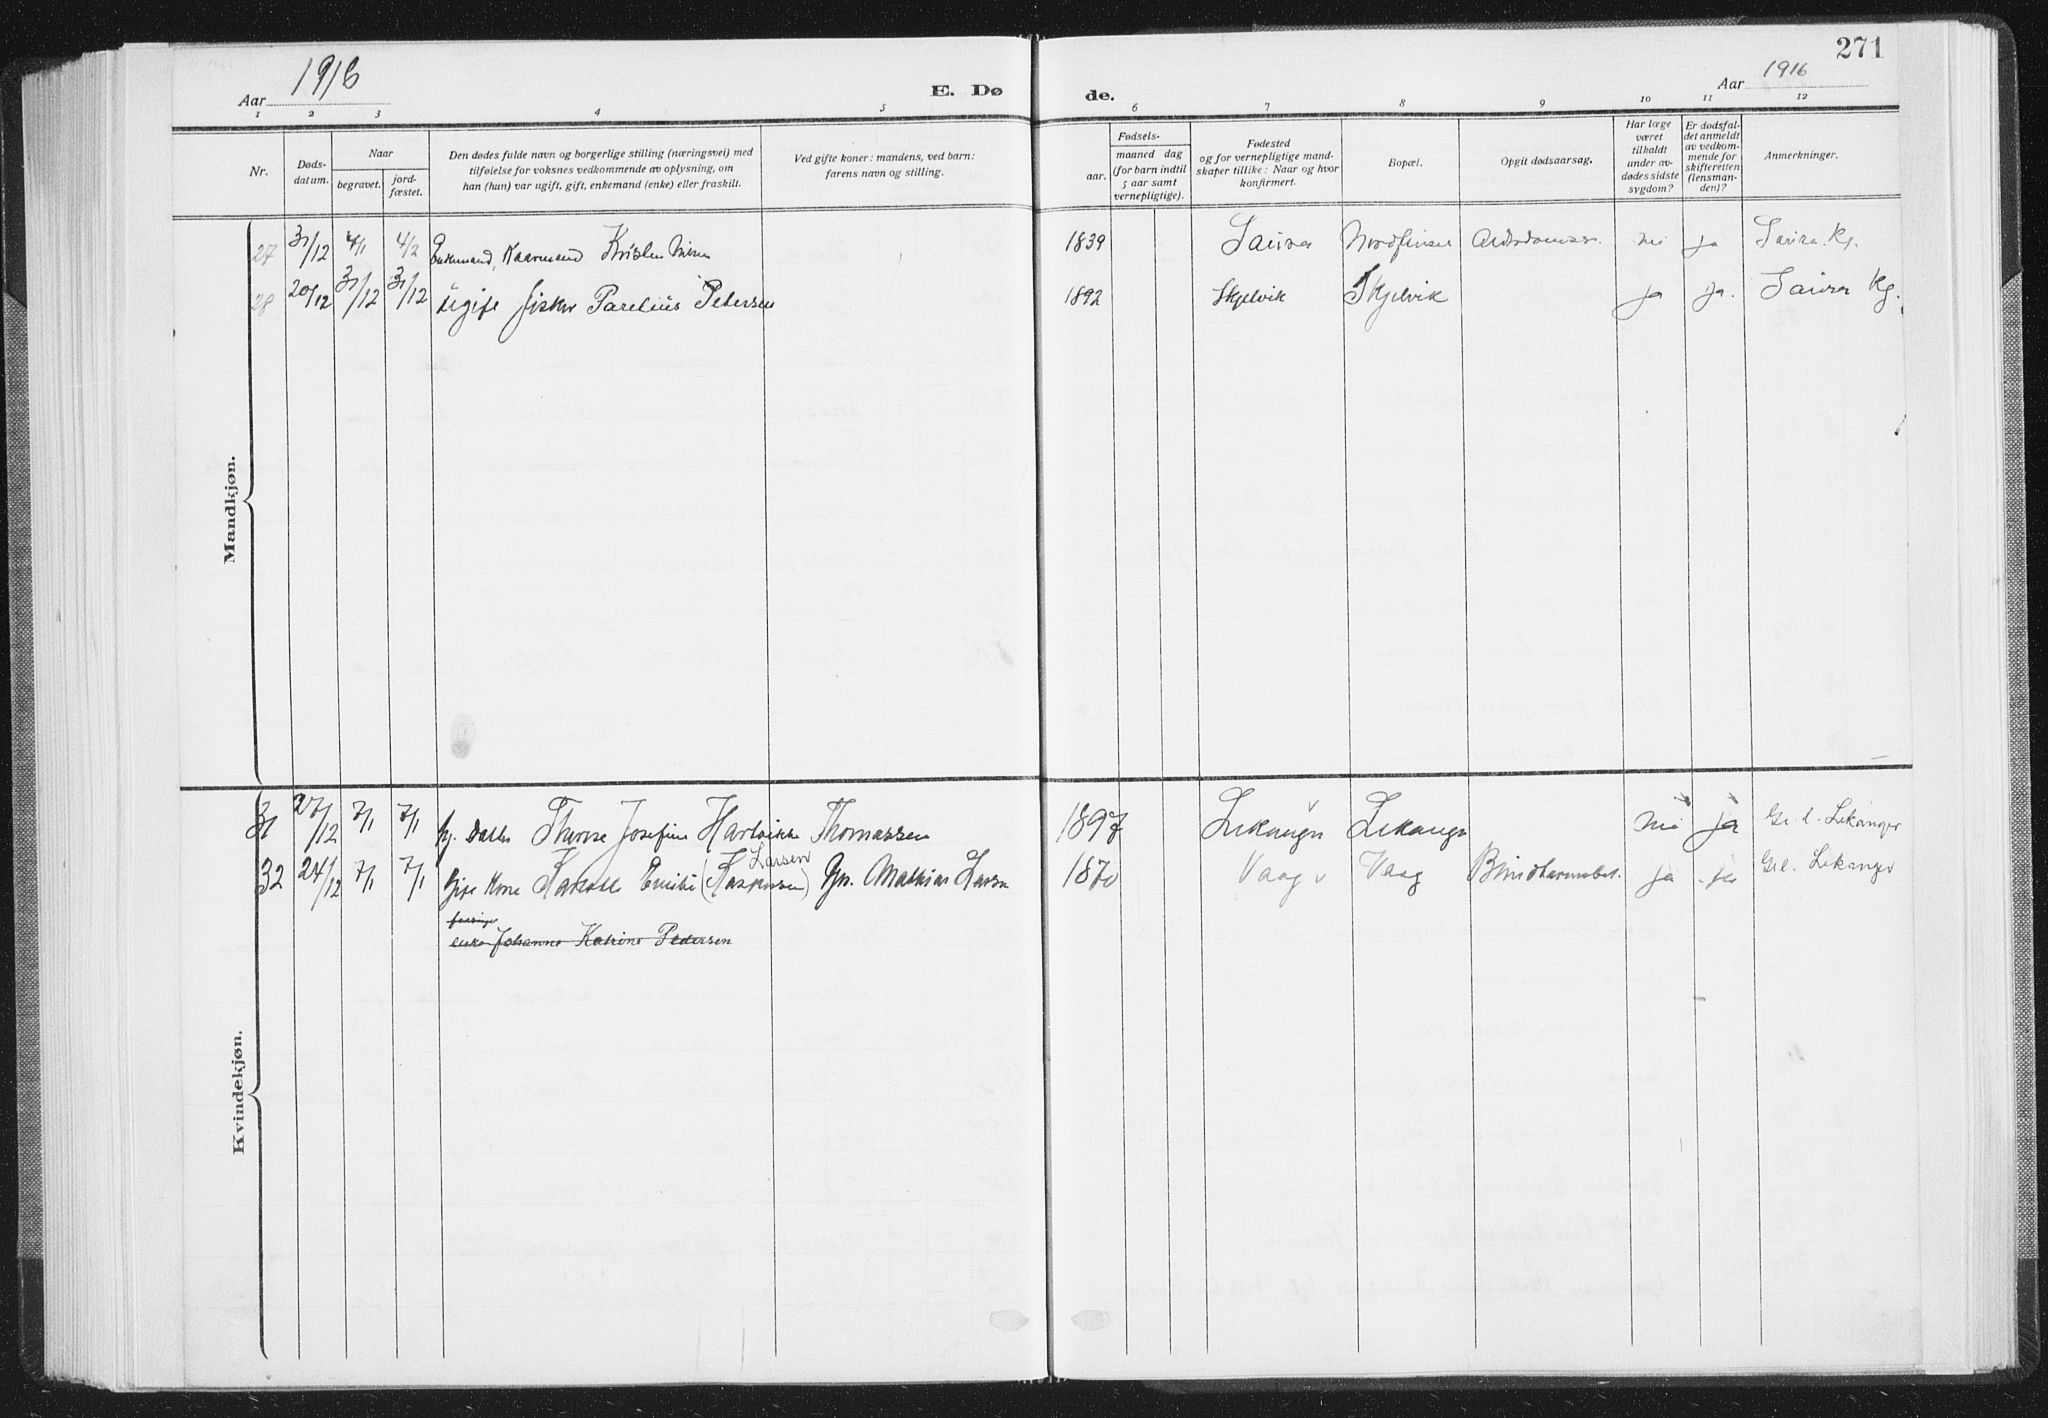 271
Aar 1916
E. Dø de.
Aar 1916
1 2 3 4 5 6 7 8 9 10 11 12
Nr.
Døds-
datum.
Naar
begravet.
jord-
fæstet.
Den dødes fulde navn og borgerlige stilling (næringsvei) med
tilføielse for voksnes vedkommende av oplysning, om
han (hun) var ugift, gift, enkemand (enke) eller fraskilt.
Ved gifte koner: mandens, ved barn:
farens navn og stilling.
Fødsels-
aar.
maaned dag
(for barn indtil
5 aar samt
vernepligtige).
Fødested
og for vernepligtige mand-
skaper tillike: Naar og hvor
konfirmert.
Bopæl.
Opgit dødsaarsag.
Har læge
været
tilkaldt
under av-
dødes sidste
sygdom?
Er dødsfal-
det anmeldt
av vedkom-
mende for
skifteretten
(lensman-
den)?
Anmerkninger.
Mandkjøn.
27 31/12 4/1 4/2 Enkemand, Kaarmand Kristen 1839 Saura ja Saura Kg.
28 20/12 31/12 31/12 Ugift fisker Parelius Petersen 1892 Skjelvik Skjelvik ja ja. Saura Kg.
Kvindekjøn.
31 27/12 7/1 7/1 Josefine Thomassen 1897 Lekanger Lekanger nei ja Gr. l. Lekanger
Larsen
32 24/12 7/1 7/1 Gift Kone Emilie (Kaspersen) Mathias Larsen 1870 Vaag Vaag ja Grl. Lekanger
Johanna Katrine Pedersen